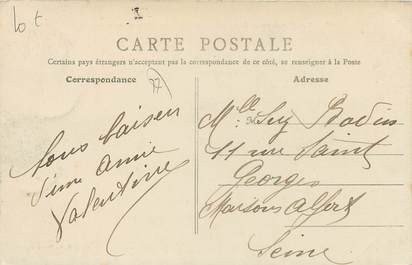 CARTE POSTALE
Certains pays étrangers n'acceptant pas la correspondance de ce côté, se renseigner à la Poste
Correspondance
Adresse
77
bons baisers
d'une amie
Valentine
Mlle Suz
11 rue Saint
Georges
Maisons Alfort
Seine